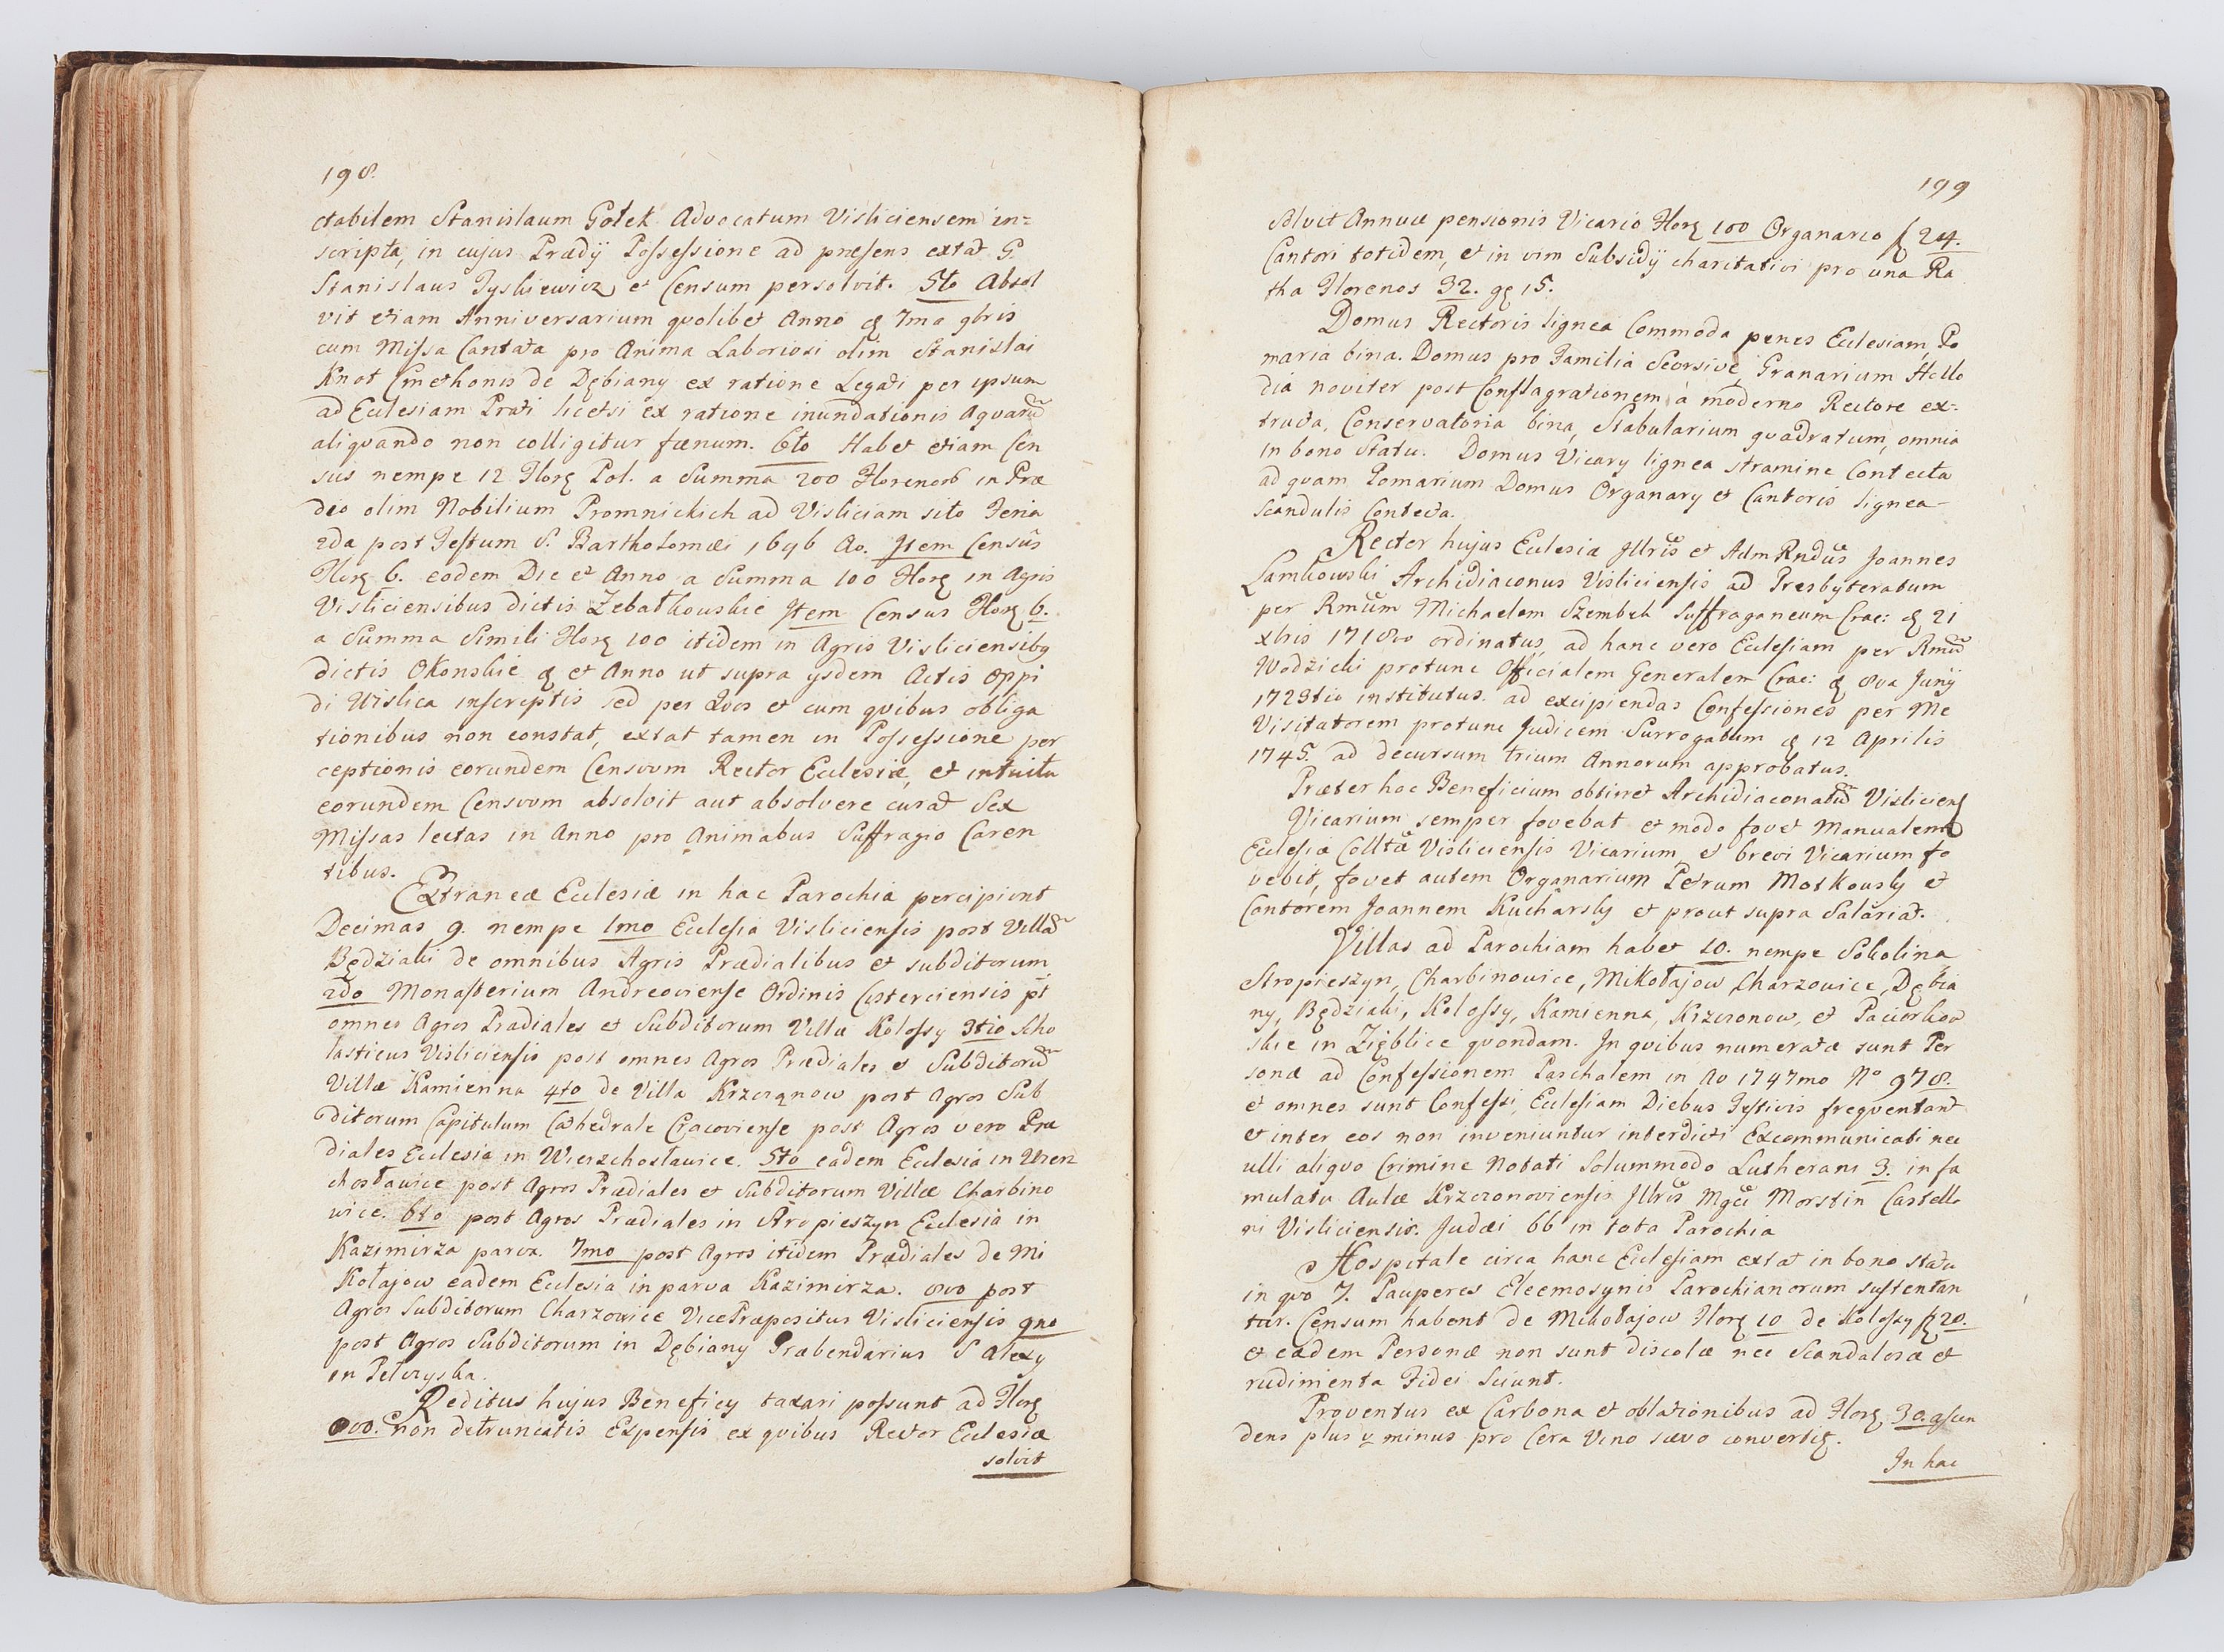 198.
ctabilem Stanislaum Gołek Advocatum Visliciensem in=
scripta, in cujus Prædij Possessione ad præsens extat G.
Stanislaus Tyskiewicz et Censum persolvit. 5to Absol
vit etiam Anniversarium qvolibet Anno 7ma 9bris
cum Missa Cantata pro Anima Laboriosi olim Stanislai
Knot Cmethonis de Dębiany ex ratione Legati per ipsum
ad Ecclesiam Prati licetsi ex ratione inundationis Aqvarũ
aliqvando non colligitur fænum. 6to Habet etiam Cen
sus nempe 12 Flor Pol. a Summa 200 Florenorũ in Præ
dio olim Nobilium Promnickich ad Visliciam sito Feria
2da post Festum S. Bartholomæi 1696 Ao. Item Censũs
Flor 6. eodem Die et Anno a Summa 100 Flor in Agris
Visliciensibus dictis Zebathowskie Item Census Flor 6.
a Summa Simili Flor 100 itidem in Agris Visliciensibq
dictis Okonskie et Anno ut supra ysdem Actis Oppi
di Wislica inscriptis sed per Qvos et cum qvibus obliga
tionibus non constat, extat tamen in Possessione per
ceptionis eorundem Censuum Rector Ecclesiæ, et intuitu
eorundem Censuum absolvit aut absolvere curat Sex
Missas lectas in Anno pro Animabus Suffragio Caren
tibus.
Extraneæ Ecclesiæ in hac Parochia percipiunt
Decimas 9. nempe 1mo Ecclesia Visliciensis post Villã
Będziaki de omnibus Agris Prædialibus et subditorum
2do Monasterium Andreoviense Ordinis Cisterciensis pt
omnes Agros Prædiales et Subditorum Villæ Kolossy 3tio Scho
lasticus Visliciensis post omnes Agros Prædiales et Subditorũ
Villæ Kamienna 4to de Villa Krzczonow post Agros Sub
ditorum Capitulum Cathedrale Cracoviense post Agros vero Præ
diales Ecclesia in Wierzchosławice. 5to eadem Ecclesia in Wierz
chosławice post Agros Prædiales et Subditorum Villæ Charbino
wice. 6to post Agros Prædiales in Stropieszyn Ecclesia in
Kazimirza parva. 7mo post Agros itidem Prædiales de Mi
kołajow eadem Ecclesia in parva Kazimirza. 8vo post
Agros Subditorum Charzowice VicePræpositus Visliciensis 9no
post Agros Subditorum in Dębiany Præbendarius S Alexy
in Pełczyska.
Reditus hujus Beneficy taxari possunt ad Flor
800. non detruncatis Expensis ex qvibus Rector Ecclesiæ
solvit
199
solvit Annuæ pensionis Vicario Flor 100 Organario f 24.
Cantori totidem, et in vim Subsidij charitativi pro una Ra
tha Florenos 32. gq 15.
Domus Rectoris lignea Commoda penes Ecclesiam, Po
maria bina. Domus pro Familia Seorsive, Granarium Hollo
dia noviter post Conflagrationem à moderno Rectore ex=
tructa, Conservatoria bina, Stabularium qvadratum, omnia
in bono Statu. Domus Vicary lignea stramine Contecta
ad qvam Pomarium Domus Organary et Cantoris lignea
Scandulis Contecta.
Rector hujus Ecclesiæ Illris et Adm Rndus Joannes
Lamkowski Archidiaconus Visliciensis ad Presbyteratum
per Rmũm Michaelem Szembek Suffraganeum Crac: 21
xbris 1718vo ordinatus, ad hanc vero Ecclesiam per Rmũ
Wodzicki protunc Officialem Generalem Crac: 8va Junij
1723tio institutus. ad excipiendas Confessiones per Me
Visitatorem protunc Judicem Surrogatum 12 Aprilis
1745. ad decursum trium Annorum approbatus.
Præter hoc Beneficium obtinet Archidiaconatũ Visliciens
Vicarium semper fovebat et modo fovet Manualem
Ecclesiæ Colltæ Visliciensis Vicarium, et brevi Vicarium fo
vebit, fovet autem Organarium Petrum Motkowsky et
Cantorem Joannem Kucharsky et prout supra Salariat.
Villas ad Parochiam habet 10. nempe Sokolina
Stropieszyn, Charbinowice, Mikołajow, Charzowice, Dębia
ny, Będziaki, Kolossy, Kamienna, Krzczonow, et Paciorkow
skie in Zięblice qvondam. In qvibus numeratæ sunt Per
sonæ ad Confessionem Paschalem in Ao 1747mo No 978.
et omnes sunt Confessi, Ecclesiam Diebus Festivis freqventant
et inter eos non inveniuntur interdicti Excommunicati nec
ulli aliqvo Crimine Notati Solummodo Lutherani 3. in fa
mulatu Aulæ Krzczonoviensis Illris Mgci Morstin Castella
ni Visliciensis. Judæi 66 in tota Parochia
Hospitale circa hanc Ecclesiam extat in bono statu
in qvo 7. Pauperes Eleemosynis Parochianorum sustentan
tur. Censum habent de Mikołajow Flor 10 de Kolossy f 20.
et eædem Personæ non sunt discolæ nec Scandalosæ et
rudimenta Fidei Sciunt.
Proventus ex Carbona et oblationibus ad Flor 30. ascen
dens plus v minus pro Cera Vino sævo convertit.
In hac